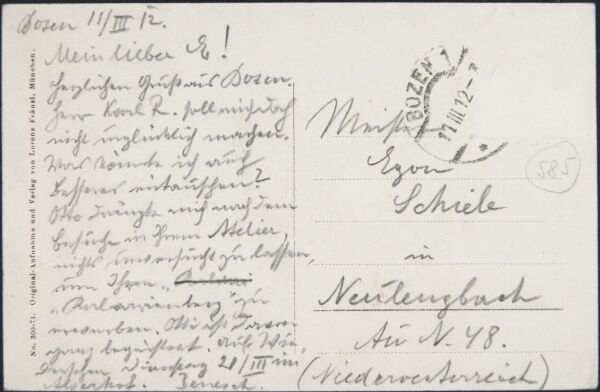 Bozen 11/III 12.
Mein lieber E!
Herzlichen Gruß aus Bozen.
Herr Karl R. soll mich doch
nicht unglücklich machen.
Was könnte ich auf
Besseres eintauschen?
Otto drängte mich nach dem
Besuche in Ihrem Atelier,
nichts unversucht zu lassen,
um Ihren
"Kalvarienberg" zu
erwerben. Otto ist davon
ganz begeistert. Auf Wie
dersehen Dienstag 21/III im
Alserhof. Benesch.
No. 300-71. Original-Aufnahme und Verlag von Lorenz Fränzl, München.
BOZEN 1
11 III 12
Meister
Egon
Schiele
in
Neulengbach
Au N. 48.
(Niederoesterreich)
585